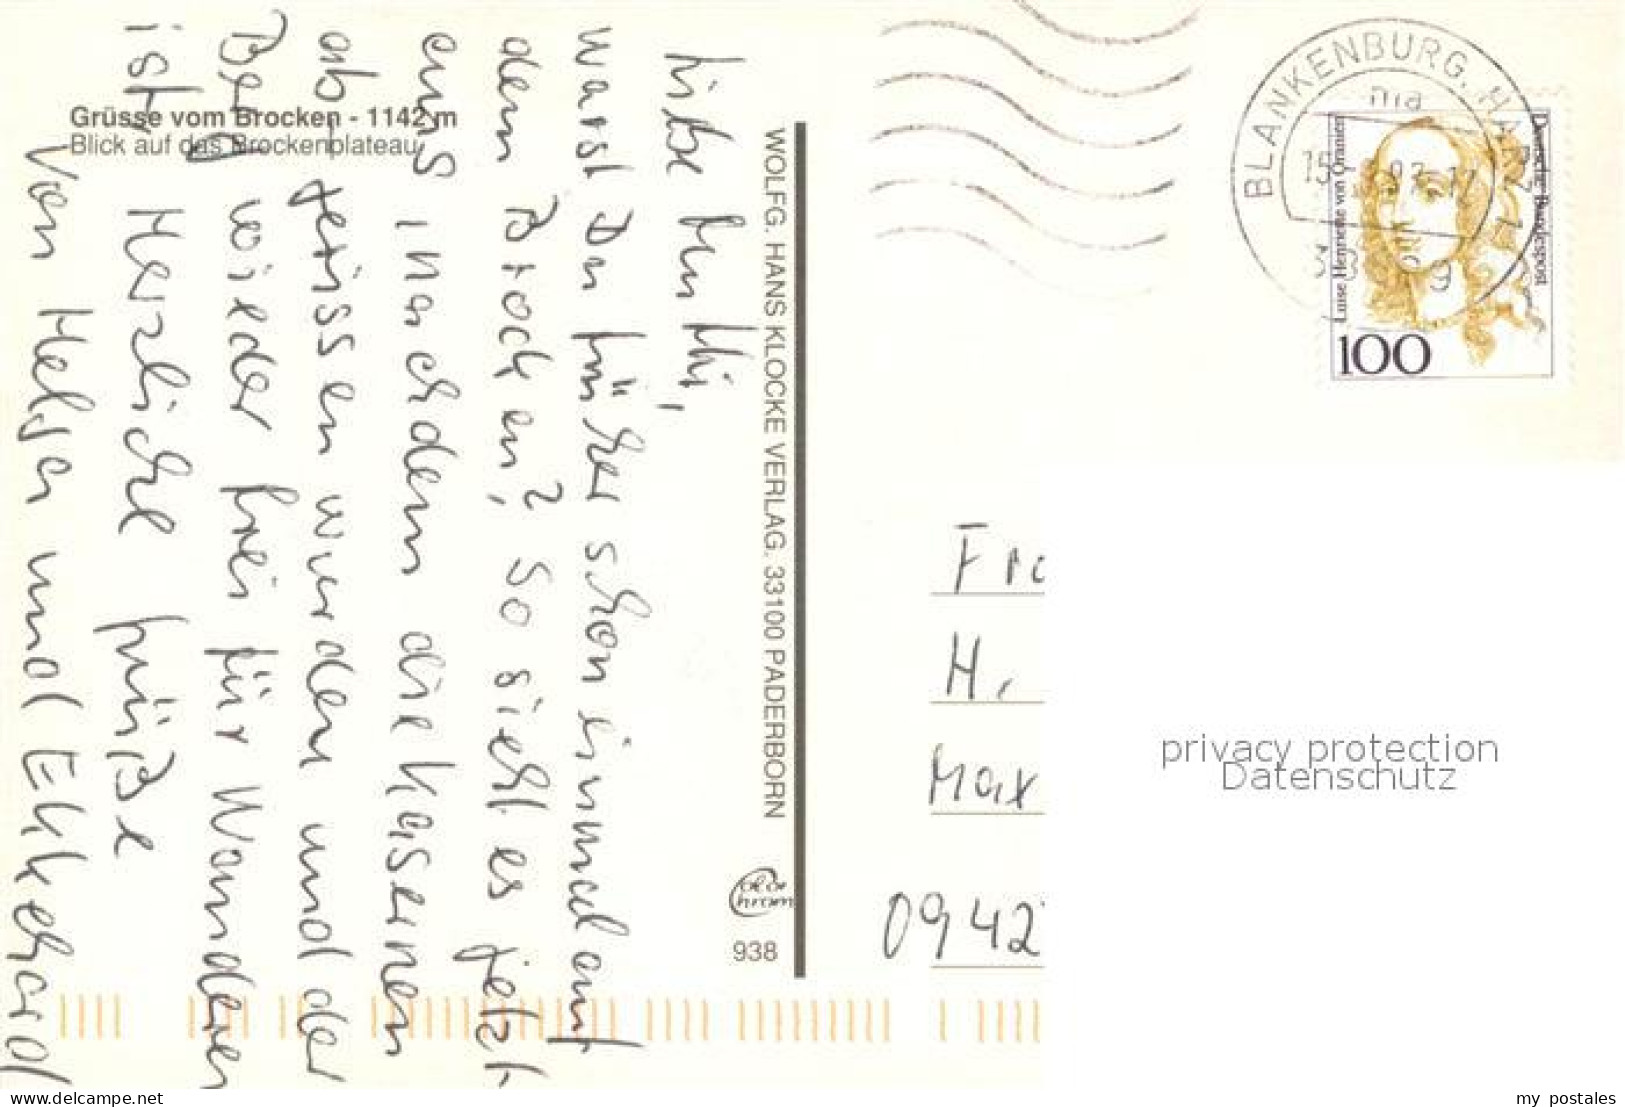 Grüsse vom Brocken - 1142 m
Blick auf das Brockenplateau
Liebe Ruthi,
warst Du früher schon einmal auf
dem Brocken? So sieht es jetzt
aus nachdem die Kasernen
ab gerissen wurden und der
Berg wieder frei für Wanderer
ist. Herzliche Grüße
Von Helga und Ekkehard
WOLFG. HANS KLOCKE VERLAG. 33100 PADERBORN
938
BLANKENBURG, HARZ
Deutsche Bundespost
Luise Henriette von Oranien
100
H.
Max
0942
privacy protection
Datenschutz
delcampe.net
my_postales